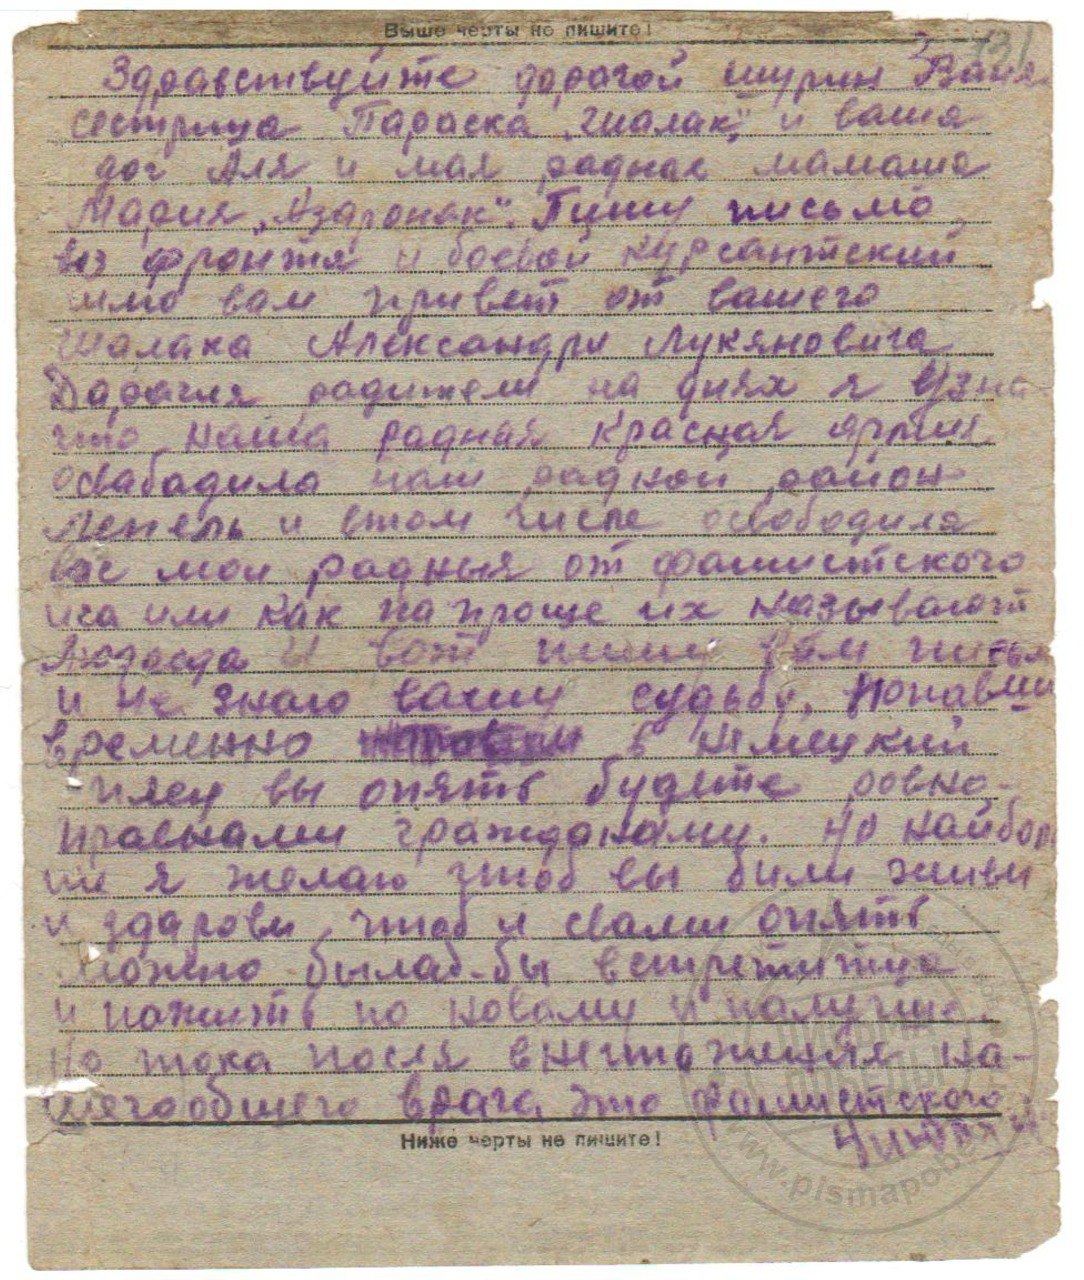 Выше черты не пишите!
131
Здравствуйте дорогой шурин Ваня
сестрица Параска "шалак" и ваша
доч Аля и мая радная мамаша
Мария "Аздронак". Пишу письмо
из фронтя и боевой курсантский
шлю вам привет от вашего
Шалака Александры Лукяновича
Дарагия радители на днях я узна
что наша радная Красная армия
освабадила наш радной район
Лепель и втом числе освободиля
вас мои радныя от фашистского
ига или как папроще их называют
людаеда И вот пишу вам письм
и не знаю вашу судьбу, Попавши
временно в Немецкий
плен вы опять будете ровно-
правнами гражданами. Но найболь
ши я желаю штоб вы били живи
и здарови штоб и свами опять
можно былаб-бы встретитца
и пажить по новаму и палучше.
Но тока после внештожения на-
шегообщего врага это фашистского
Ниже черты не пишите!
www.pismapobe